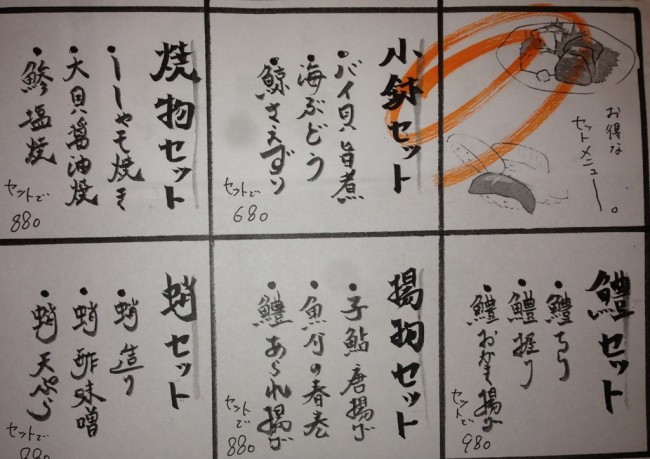 お得な
セットメニュー。
小鉢セット
・バイ貝旨煮
・海ぶどう
・鯨さえずり
セットで
680
焼物セット
・ししゃも焼き
・大貝醤油焼
・鯵塩焼
セットで
880
鱧セット
・鱧ちり
・鱧握り
・鱧おかき揚げ
セットで
980
揚物セット
・子鮎唐揚げ
・魚介の春巻
・鱧あられ揚げ
セットで
880
蛸セット
・蛸造り
・蛸酢味噌
・蛸天ぷら
セットで